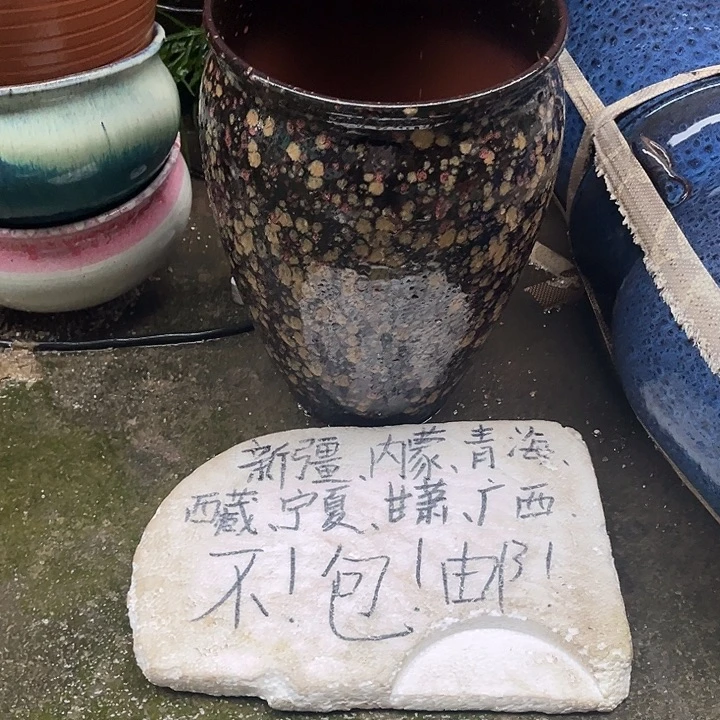 新疆、内蒙、青海、
西藏、宁夏、甘肃、广西.
不！包！邮！